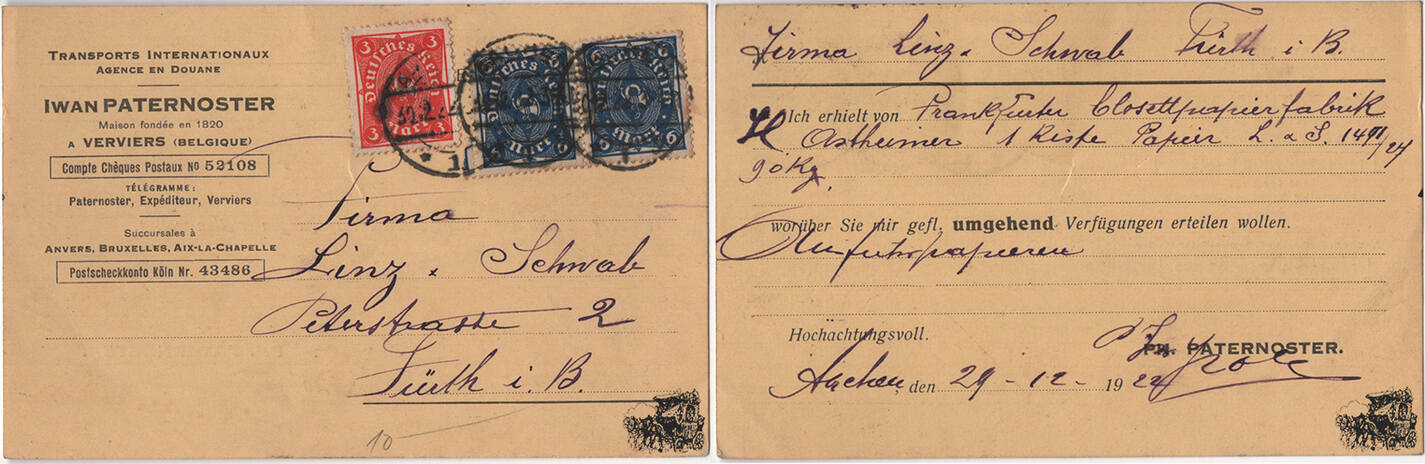 TRANSPORTS INTERNATIONAUX
AGENCE EN DOUANE
IWAN PATERNOSTER
Maison fondée en 1820
A VERVIERS (BELGIQUE)
Compte Chèques Postaux No 52108
TÉLÉGRAMME:
Paternoster, Expéditeur, Verviers
Succursales à
ANVERS, BRUXELLES, AIX-LA-CHAPELLE
Postscheckkonto Köln Nr. 43486
3 3
Deutsches Reich
3 Mark 3
Deutsches Reich
Mark 6
Deutsches Reich
Mark 6
Firma
Linz & Schwab
Peterstrasse 2
Fürth i. B.
10
Firma Linz & Schwab Fürth i B.
Ich erhielt von Frankfurter Closettpapierfabrik
Ostheimer 1 Kiste Papier L. & S.
90 Kg
worüber Sie mir gefl. umgehend Verfügungen erteilen wollen.
Hochachtungsvoll.
PATERNOSTER.
Aachen, den 29-12-1922